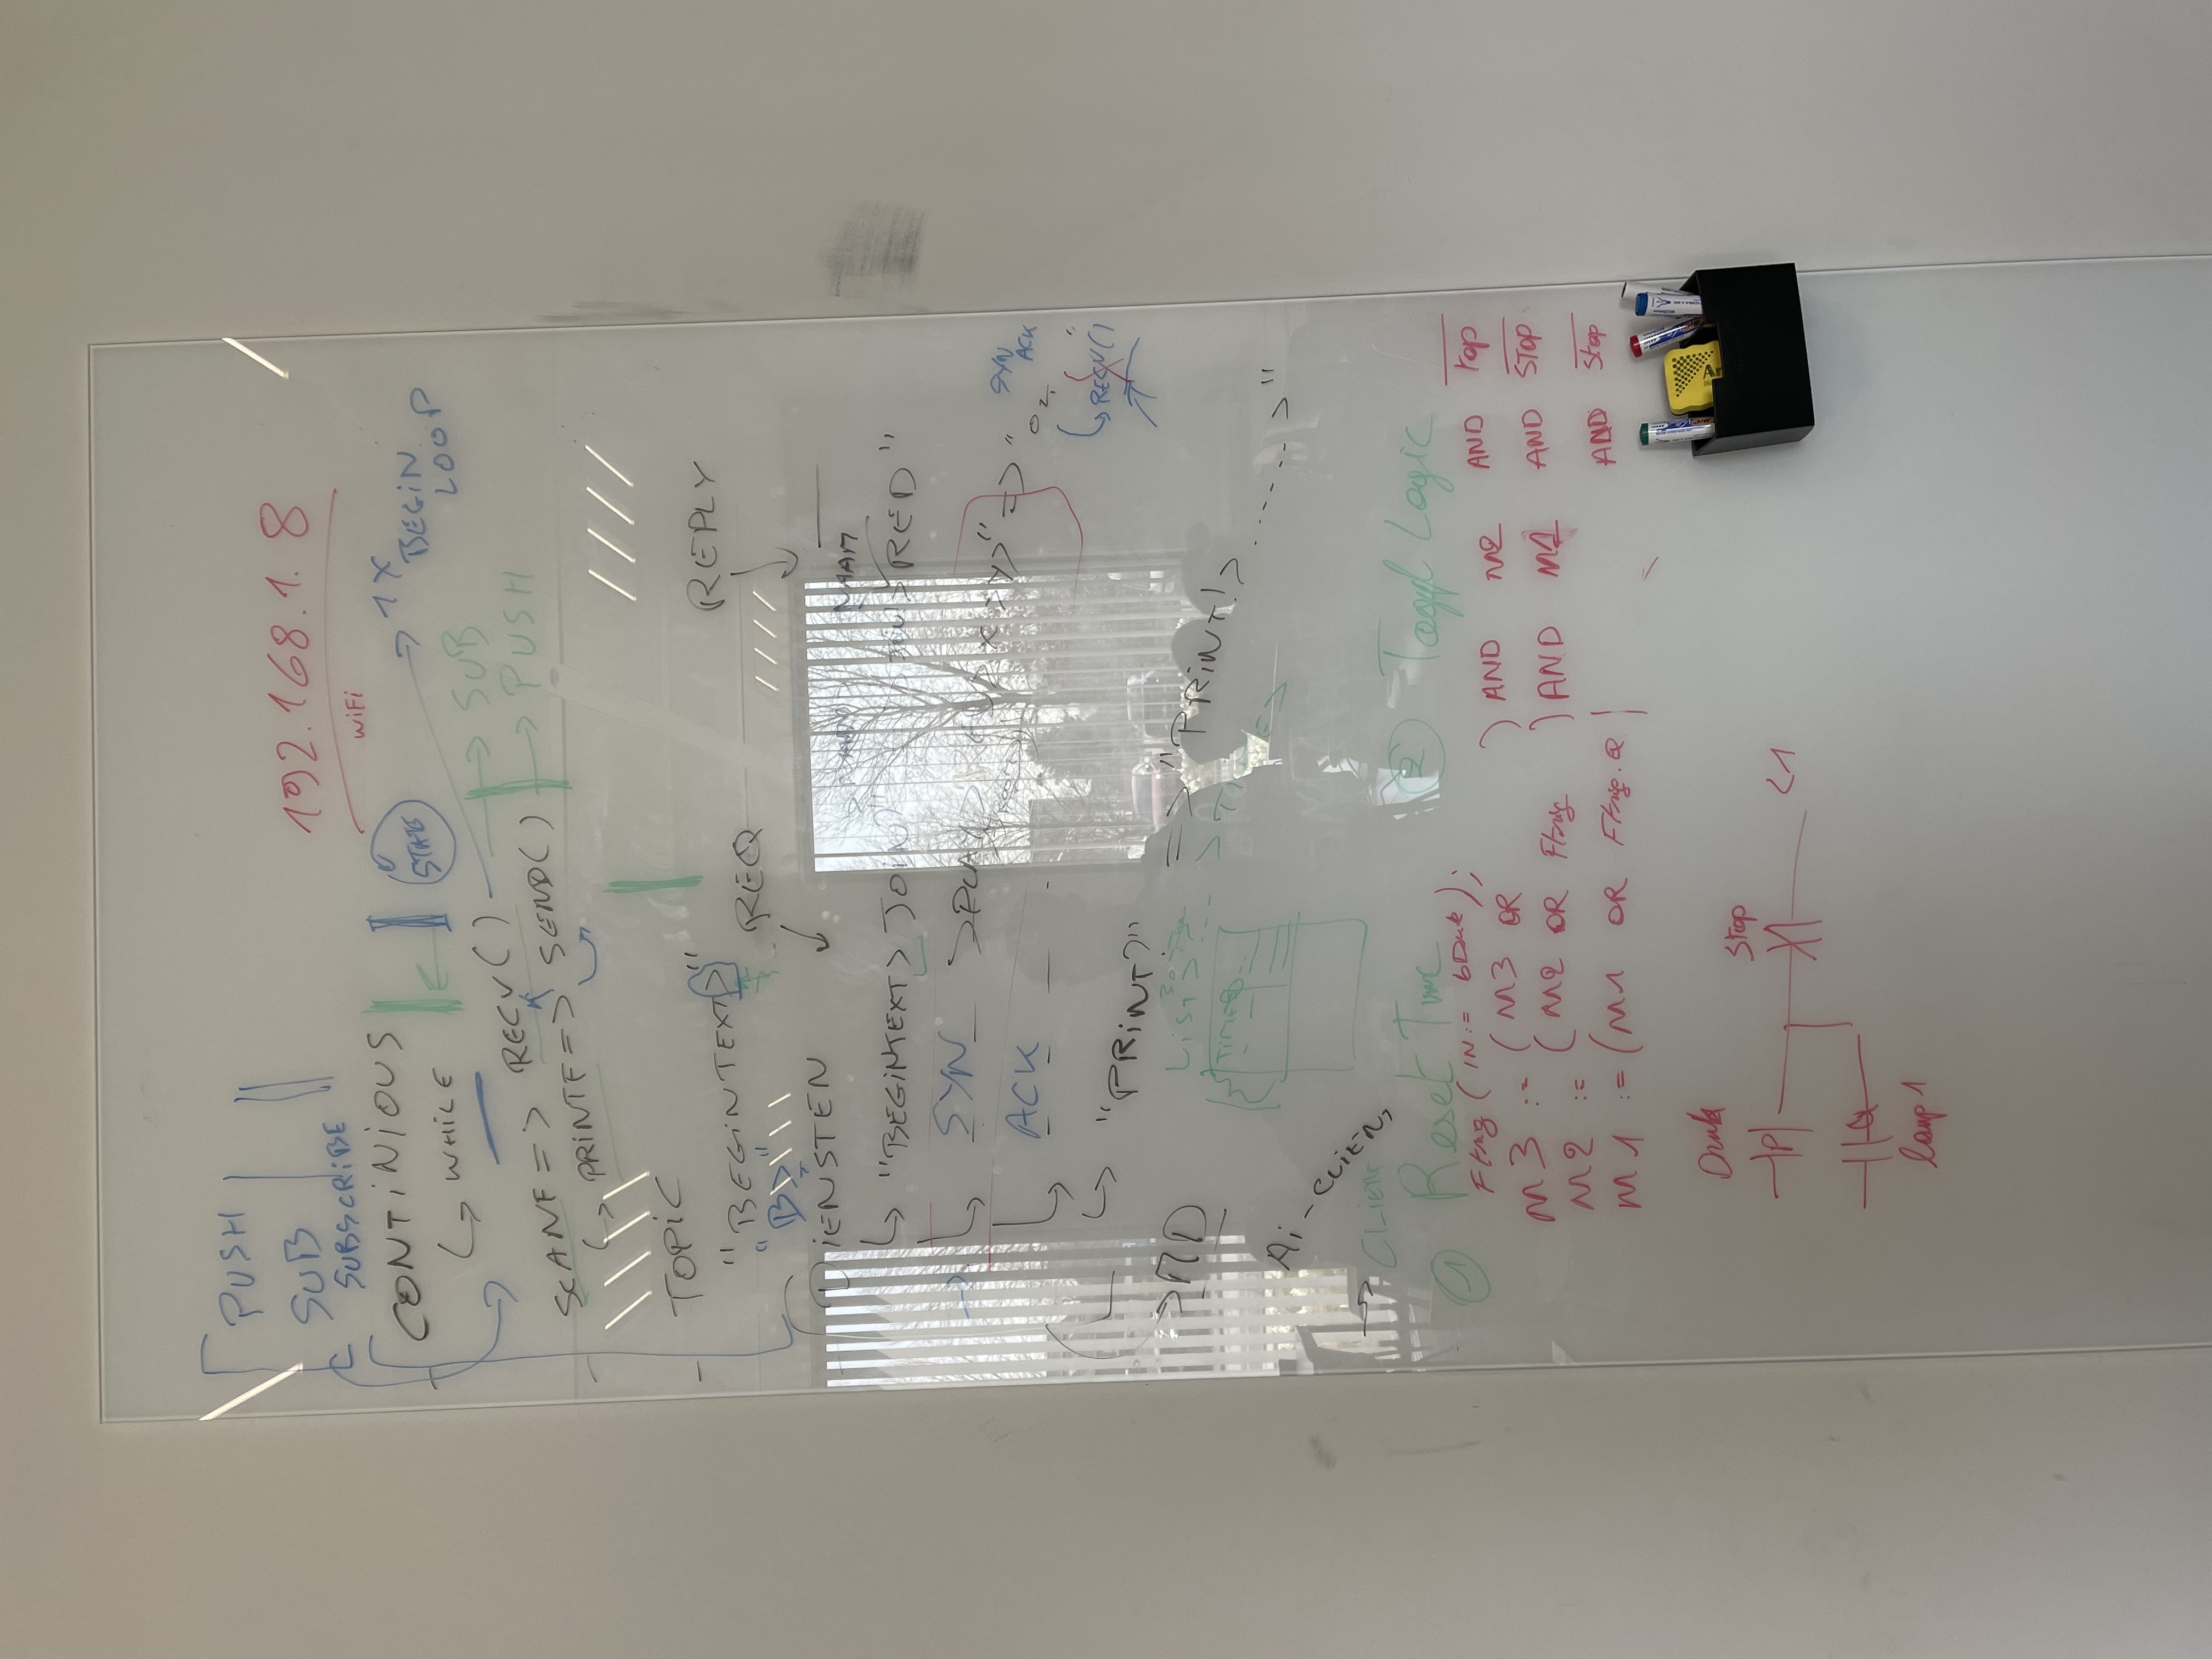 PUSH
SUB
SUBSCRIBE
192.168.1.8
WiFi
CONTINIOUS
STATE
1X
BEGIN
LOOP
WHILE
SUB
PUSH
SCANF => RECV()
PRINTF => SEND()
TOPIC
"BEGINTEXT>"
"B>"
REQ
REPLY
DIENSTEN
NAAM
"BEGINTEXT> JOIN
RED"
SYN
>PLAY>
ACK
SYN
ACK
RECV()
"PRINT?"
=> "PRINT!>
>"
LIST>
>MD
Ai-CLIENT
CLIENT
1 Reset
2 Toggl Logic
Ftrig (IN:= bDruk);
M3 := (M3 OR ) AND M2 AND
M2 := (M2 OR Ftrig ) AND M1 AND STOP
M1 := (M1 OR Ftrig.Q AND Stop
Druk
P
Stop
lamp1